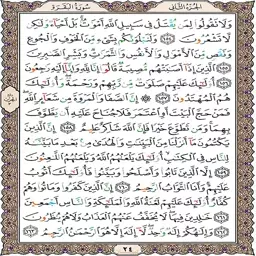 سُورَةُ البَقَرَةِ الجُزْءُ الثَّانِي
وَلَا تَقُولُوا لِمَن يُقْتَلُ فِي سَبِيلِ اللَّهِ أَمْوَاتٌ بَلْ أَحْيَاءٌ وَلَٰكِن
لَّا تَشْعُرُونَ ١٥٤ وَلَنَبْلُوَنَّكُم بِشَيْءٍ مِّنَ الْخَوْفِ وَالْجُوعِ
وَنَقْصٍ مِّنَ الْأَمْوَالِ وَالْأَنفُسِ وَالثَّمَرَاتِ وَبَشِّرِ الصَّابِرِينَ ١٥٥
الَّذِينَ إِذَا أَصَابَتْهُم مُّصِيبَةٌ قَالُوا إِنَّا لِلَّهِ وَإِنَّا إِلَيْهِ رَاجِعُونَ ١٥٦
أُولَٰئِكَ عَلَيْهِمْ صَلَوَاتٌ مِّن رَّبِّهِمْ وَرَحْمَةٌ وَأُولَٰئِكَ
هُمُ الْمُهْتَدُونَ ١٥٧ إِنَّ الصَّفَا وَالْمَرْوَةَ مِن شَعَائِرِ اللَّهِ
فَمَنْ حَجَّ الْبَيْتَ أَوِ اعْتَمَرَ فَلَا جُنَاحَ عَلَيْهِ أَن يَطَّوَّفَ
بِهِمَا وَمَن تَطَوَّعَ خَيْرًا فَإِنَّ اللَّهَ شَاكِرٌ عَلِيمٌ ١٥٨ إِنَّ الَّذِينَ
يَكْتُمُونَ مَا أَنزَلْنَا مِنَ الْبَيِّنَاتِ وَالْهُدَىٰ مِن بَعْدِ مَا بَيَّنَّاهُ
لِلنَّاسِ فِي الْكِتَابِ أُولَٰئِكَ يَلْعَنُهُمُ اللَّهُ وَيَلْعَنُهُمُ اللَّاعِنُونَ ١٥٩
إِلَّا الَّذِينَ تَابُوا وَأَصْلَحُوا وَبَيَّنُوا فَأُولَٰئِكَ أَتُوبُ
عَلَيْهِمْ وَأَنَا التَّوَّابُ الرَّحِيمُ ١٦٠ إِنَّ الَّذِينَ كَفَرُوا وَمَاتُوا وَهُمْ
كُفَّارٌ أُولَٰئِكَ عَلَيْهِمْ لَعْنَةُ اللَّهِ وَالْمَلَائِكَةِ وَالنَّاسِ أَجْمَعِينَ ١٦١
خَالِدِينَ فِيهَا لَا يُخَفَّفُ عَنْهُمُ الْعَذَابُ وَلَا هُمْ يُنظَرُونَ ١٦٢
وَإِلَٰهُكُمْ إِلَٰهٌ وَاحِدٌ لَّا إِلَٰهَ إِلَّا هُوَ الرَّحْمَٰنُ الرَّحِيمُ ١٦٣
٢٤